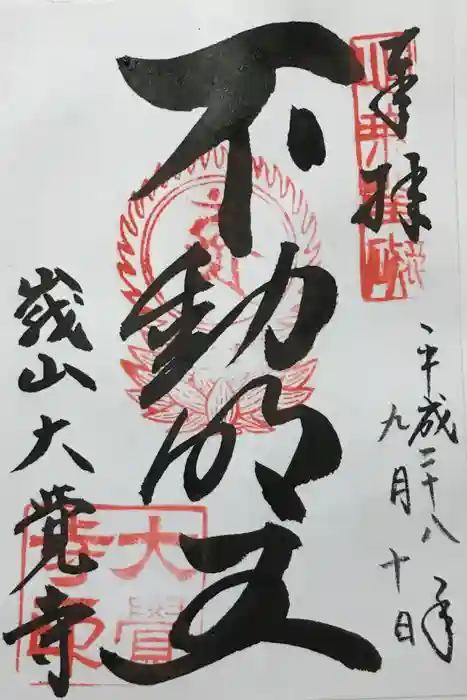 奉拝
平成二十八年
九月十日
不動明王
嵯山大覺寺
大覺
寺印